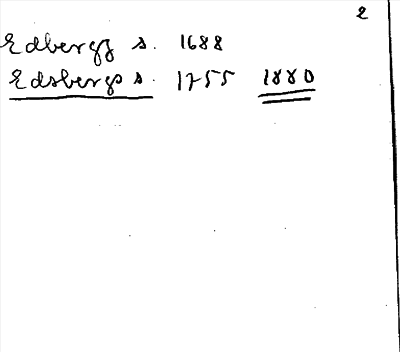 2
Edbergz s. 1688
Edsbergs s. 1755 1880